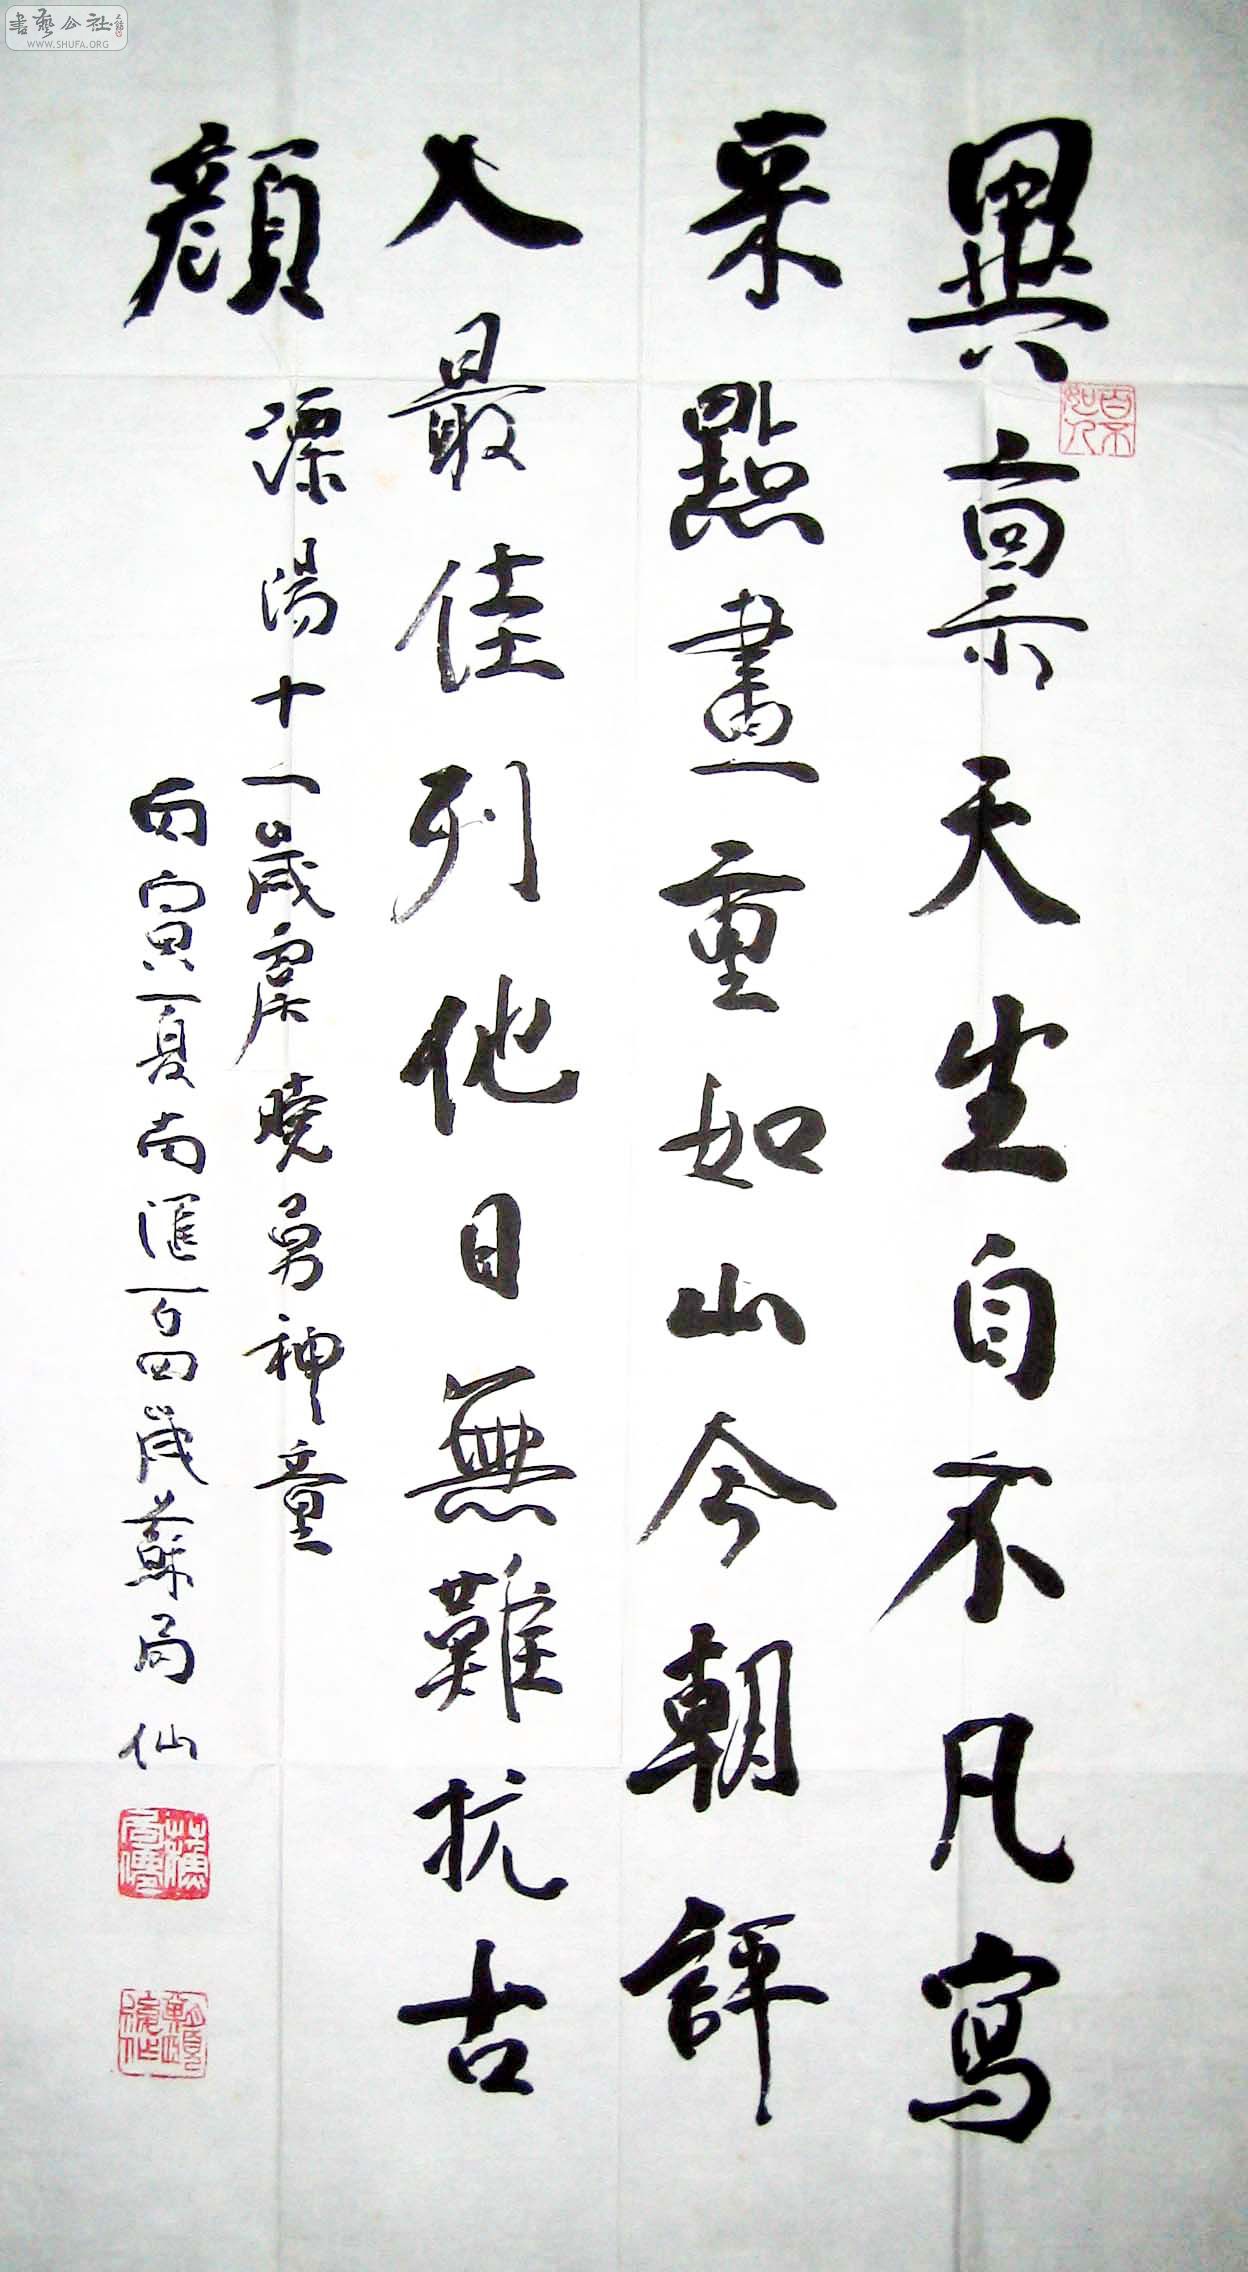 書藝公社
WWW.SHUFA.ORG
異稟天生自不凡寫
來點畫重如山今朝評
入最佳列他日無難抗古
顏
溧陽十一歲虞曉勇神童
丙寅夏南滙百四歲蘇局仙
百不如人